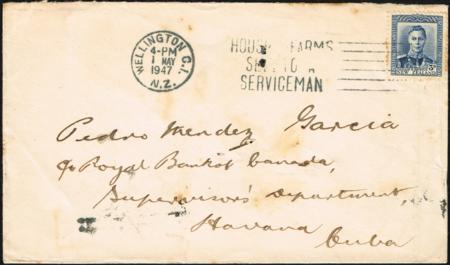 WELLINGTON C.1.
4-PM
1 MAY
1947
N.Z.
HOUSE FARMS
SERVICEMAN
NEW ZEALAND
Pedro Mendez Garcia
c/o Royal Bank of Canada,
Supervisor's Department,
Havana
Cuba